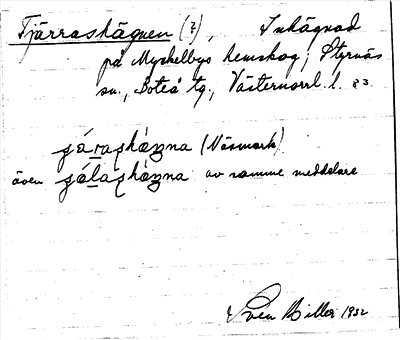 Fjärrashägnen (?), Inhägnad
på Myckelbys hemskog, Styrnäs
sn., Boteå tg., Västernorrl. l. 23
(Näsmark)
även av samme meddelare
Sven Hiller 1932